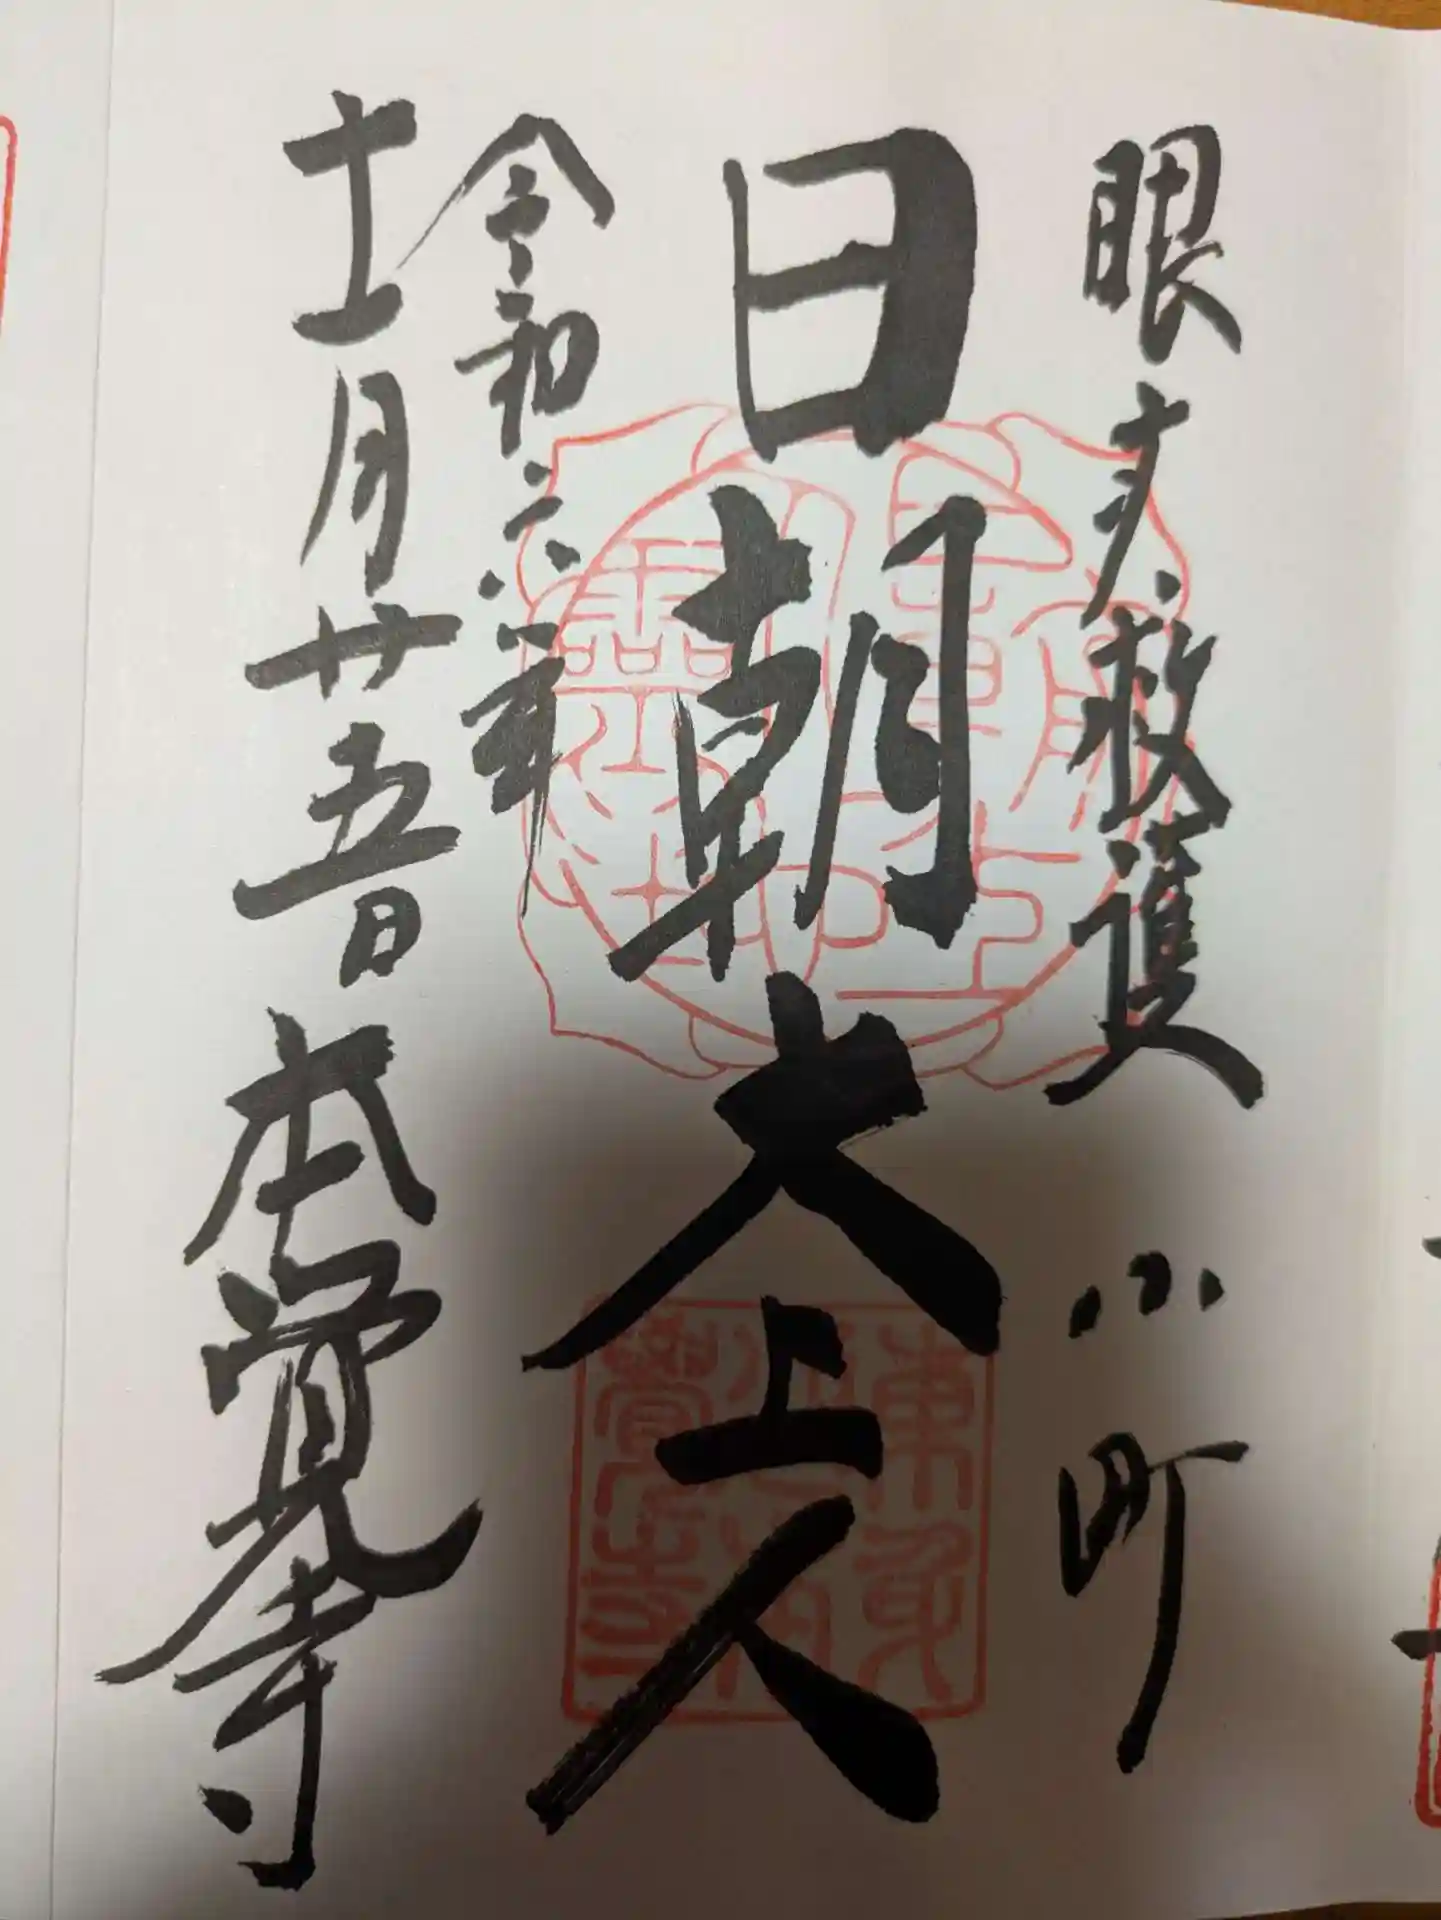 眼救護 小町
日朝大上人
令和六年
十一月廿五日 本覚寺